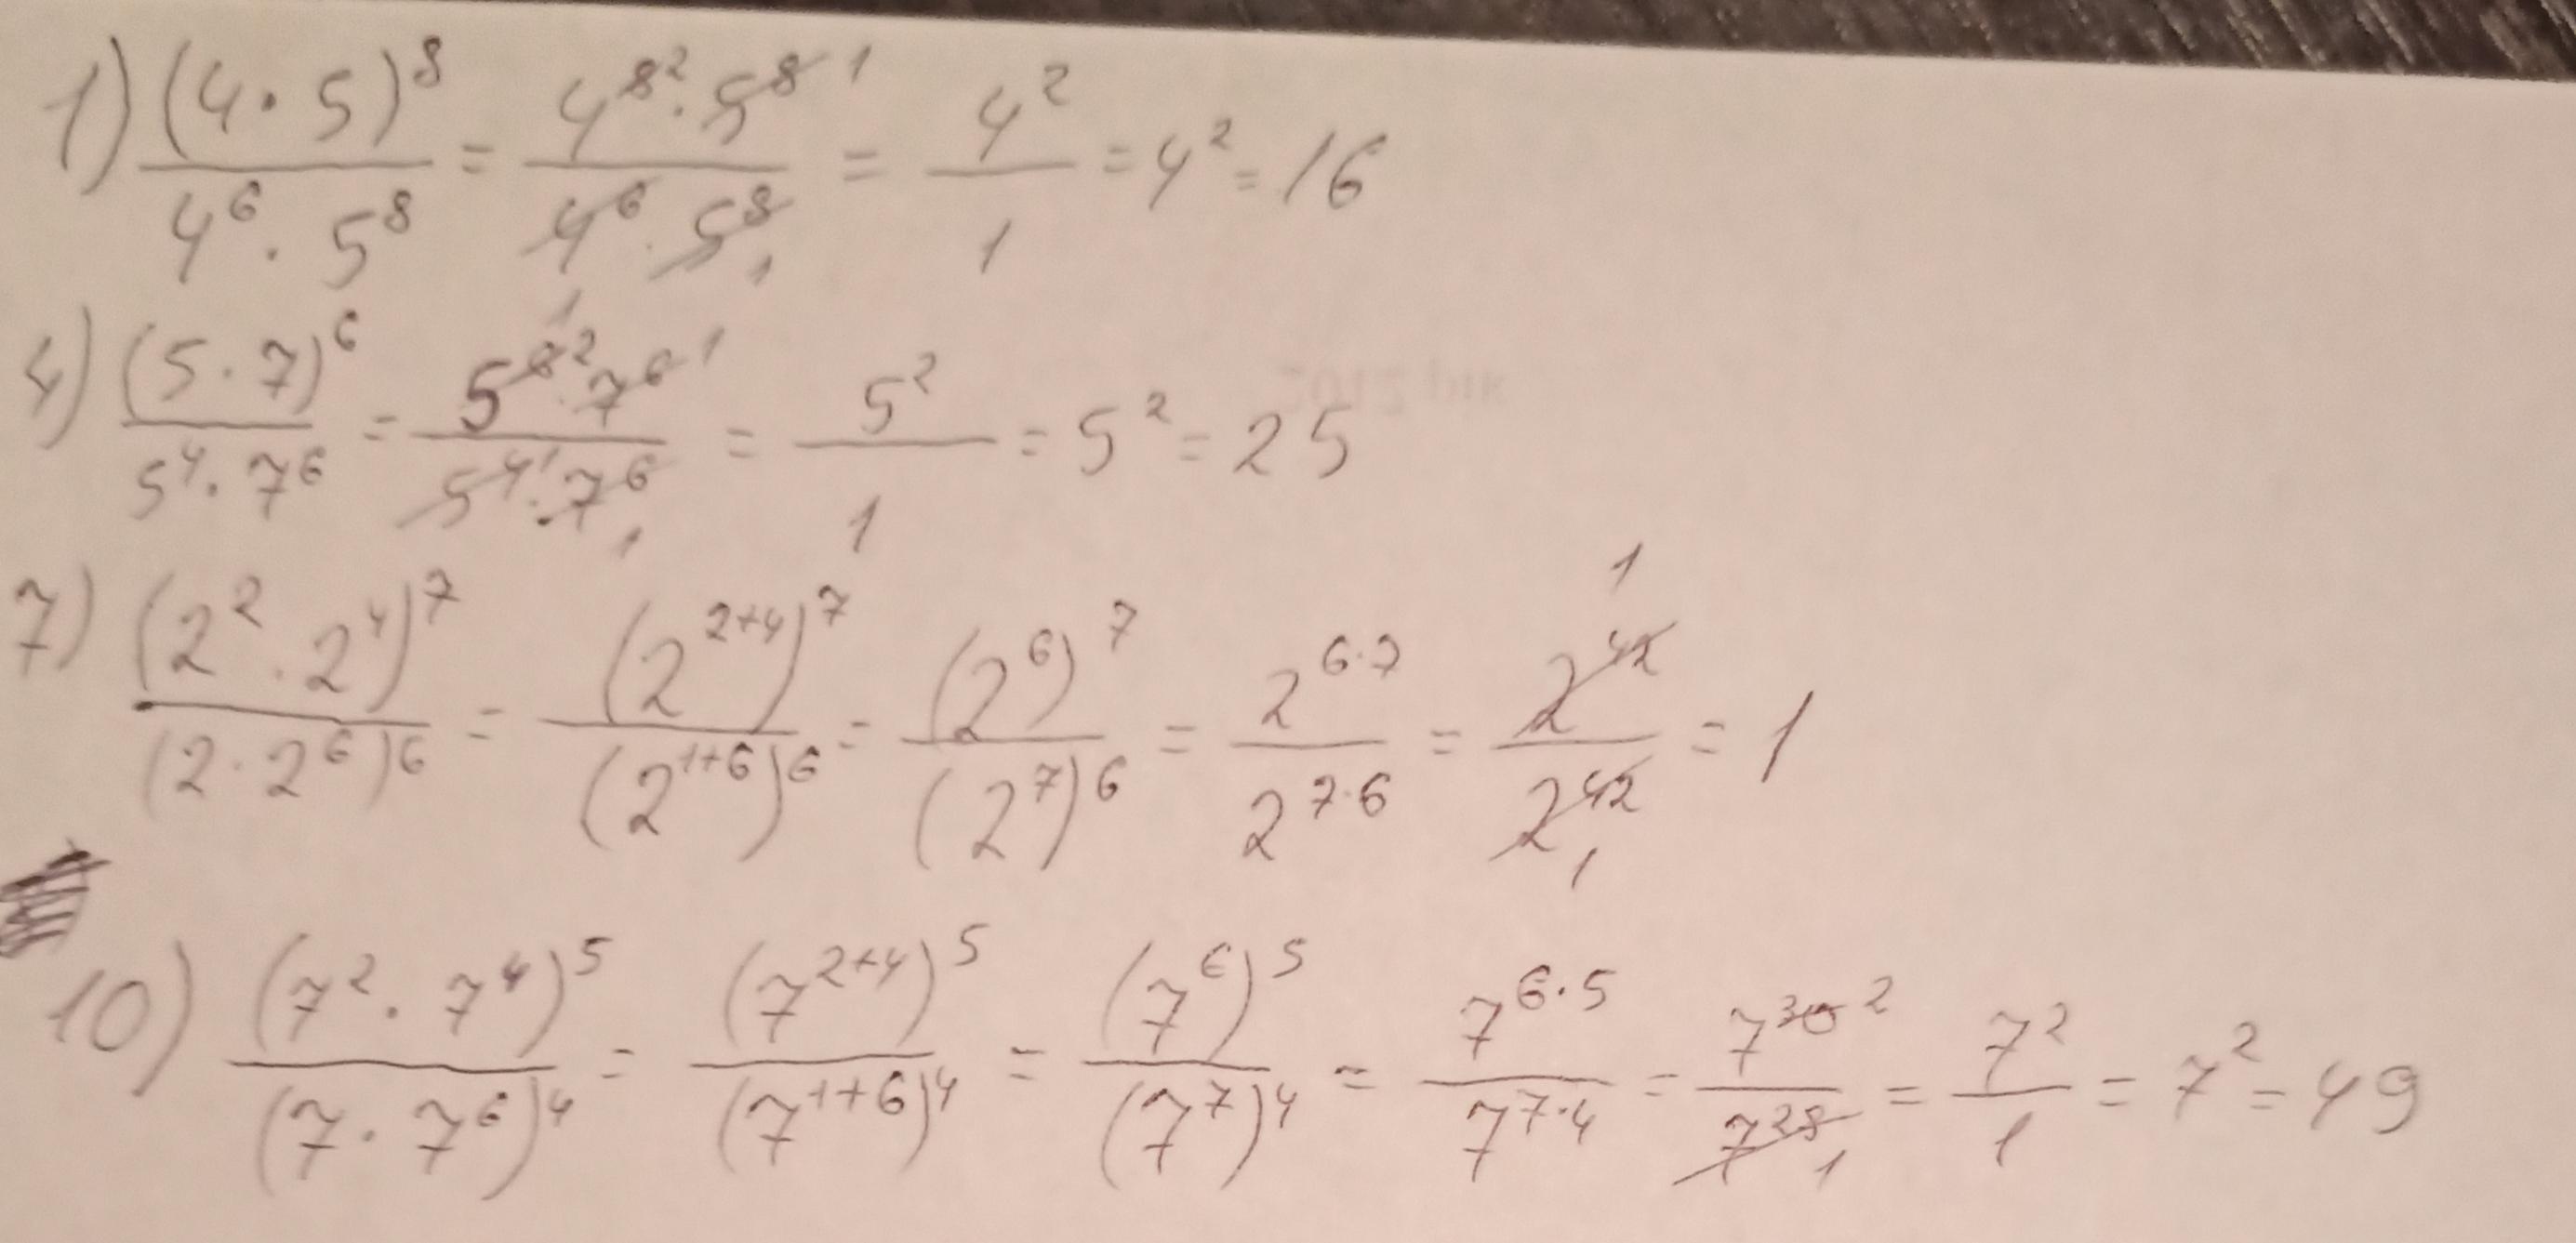 1) (4·5)^8 / (4^6 · 5^8) = (4^8 ² · 5^8 1) / (4^6 1 · 5^8 1) = 4^2 / 1 = 4^2 = 16
4) (5·7)^6 / (5^4 · 7^6) = (5^6 ² · 7^6 1) / (5^4 1 · 7^6 1) = 5^2 / 1 = 5^2 = 25
7) (2^2 · 2^4)^7 / (2·2^6)^6 = (2^(2+4))^7 / (2^(1+6))^6 = (2^6)^7 / (2^7)^6 = 2^(6·7) / 2^(7·6) = 2^42 1 / 2^42 1 = 1
10) (7^2 · 7^4)^5 / (7·7^6)^4 = (7^(2+4))^5 / (7^(1+6))^4 = (7^6)^5 / (7^7)^4 = 7^(6·5) / 7^(7·4) = 7^30 ² / 7^28 1 = 7^2 / 1 = 7^2 = 49